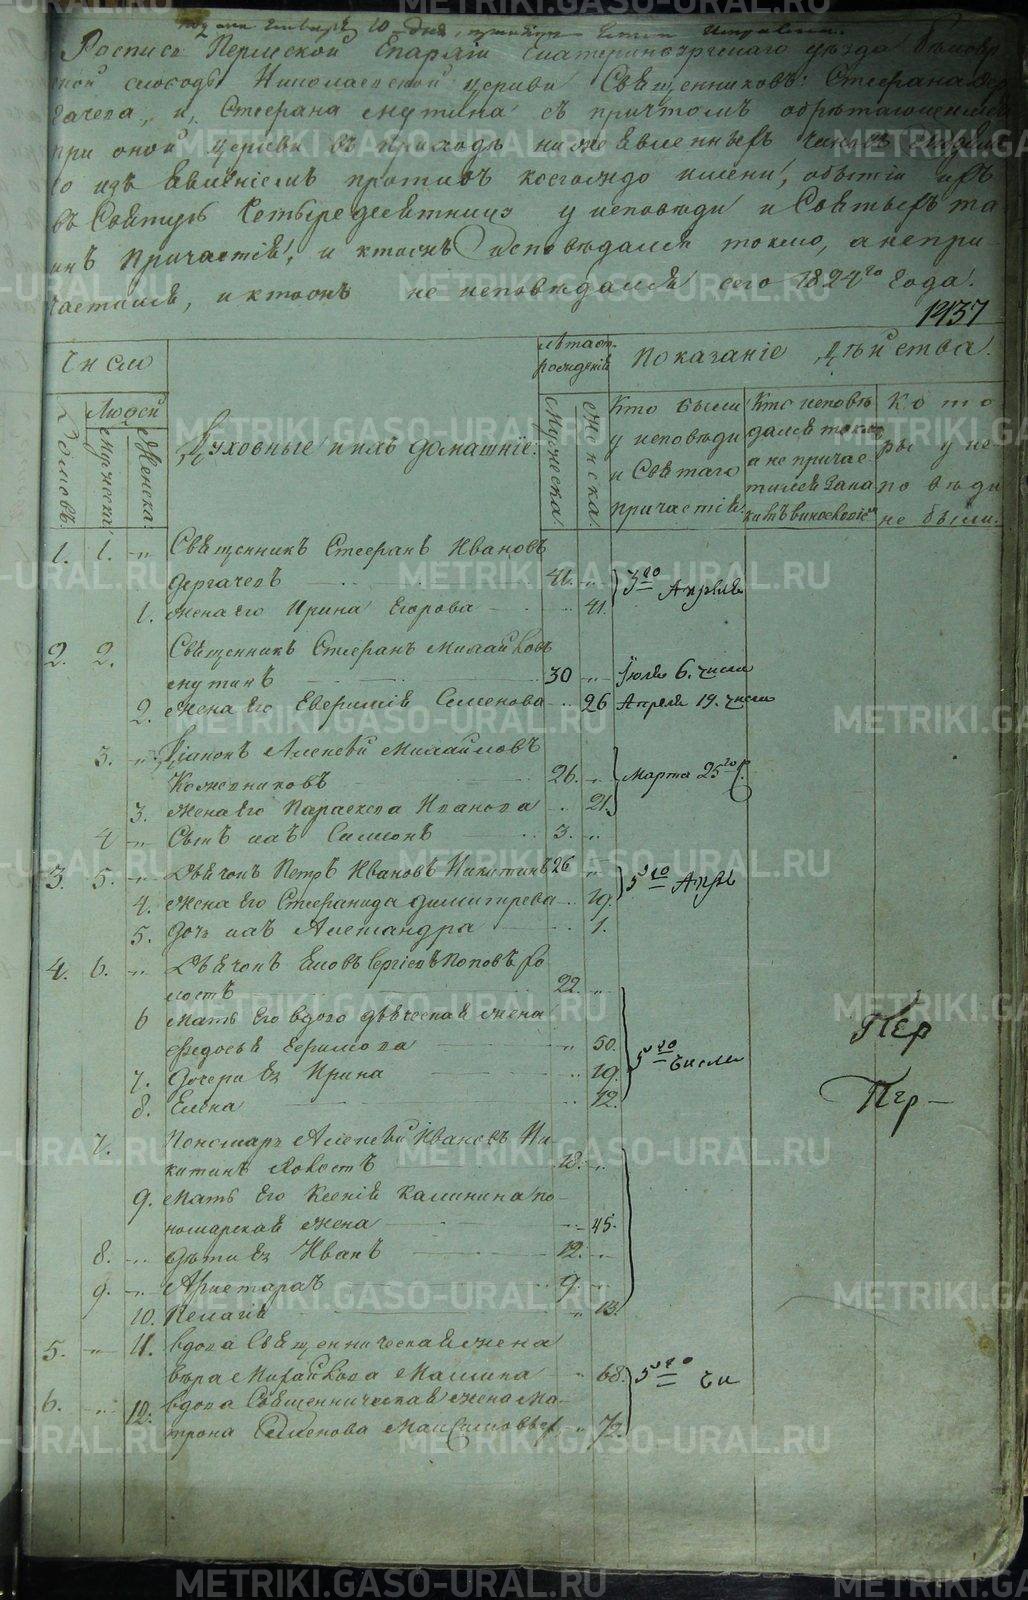 Роспись Пермской Епархiи Екатеринбургскаго уѣзда Бѣлояр
ской слободы Николаевской церкви Священниковъ: Стефана Дер
гачева, и, Стефана Мутина съ причтомъ обрѣтающихся
при оной церкви въ приходѣ нижеявленныхъ чиновъ людей
со изъявленiемъ противъ коегождо имени, о бытiи ихъ
въ Святую Четыредесятницу у исповѣди и Святыхъ та
инъ Причастiя, и ктожъ исповѣдался токмо, а непри
частился, и ктожъ не исповѣдался сего 1824го Года.
1437
Число
лѣта от рожденiя
Показанiе дѣйства.
Домовъ.
Людей
Мужеска
Женска.
Духовные и ихъ домашнiе:
Мужеска.
Женска.
Кто были у исповѣди и Святаго причастiя.
Кто исповѣдался токмо а не причастился
Которы у исповѣди не были.
1. 1. „ Священникъ Стефанъ Ивановъ
Дергачевъ 41. „ 3го Апрѣля
1. Жена его Ирина Егорова 41.
2. 2. Священникъ Стефанъ Михайловъ
Мутинъ 30 „ Iюля 6. числа
2. Жена его Евфимiя Семенова 26 Апреля 19. числа
3. „ Дiаконъ Алексей Михайловъ
Кожевниковъ 26. „ Марта 25го
3. Жена его Параскева Иванова 21.
4 „ Сынъ ихъ Симеонъ 3. „
3. 5. „ Дьячокъ Петръ Ивановъ Никитинъ 26 „ 5го Апрѣ
4. Жена его Стефанида Димитрева 19.
5. Дочь ихъ Александра 1.
4. 6. „ Дьячокъ Iаковъ Сергiевъ Поповъ хо
лостъ 22. „
6 Мать его вдова дьяческая жена
Федосья Ефимова „ 50. 5го числа
7. Дочери ея Ирина 19. Пер
8. Елена 12. Пер
7. Пономарь Алексей Ивановъ Ни
китинъ холостъ 18. „
9. Мать его Ксенiя Калинина по
номарская жена 45.
8. „ Дѣти ея Иванъ 12. „
9. „ Аристархъ 9. „
10. Пелагiя „ 13.
5. „ 11. вдова Священническая жена
Вѣра Михайлова 68. 5го чи
6. „ 12. вдова Священническая жена Ма
трона Семенова „ 72.
METRIKI.GASO-URAL.RU